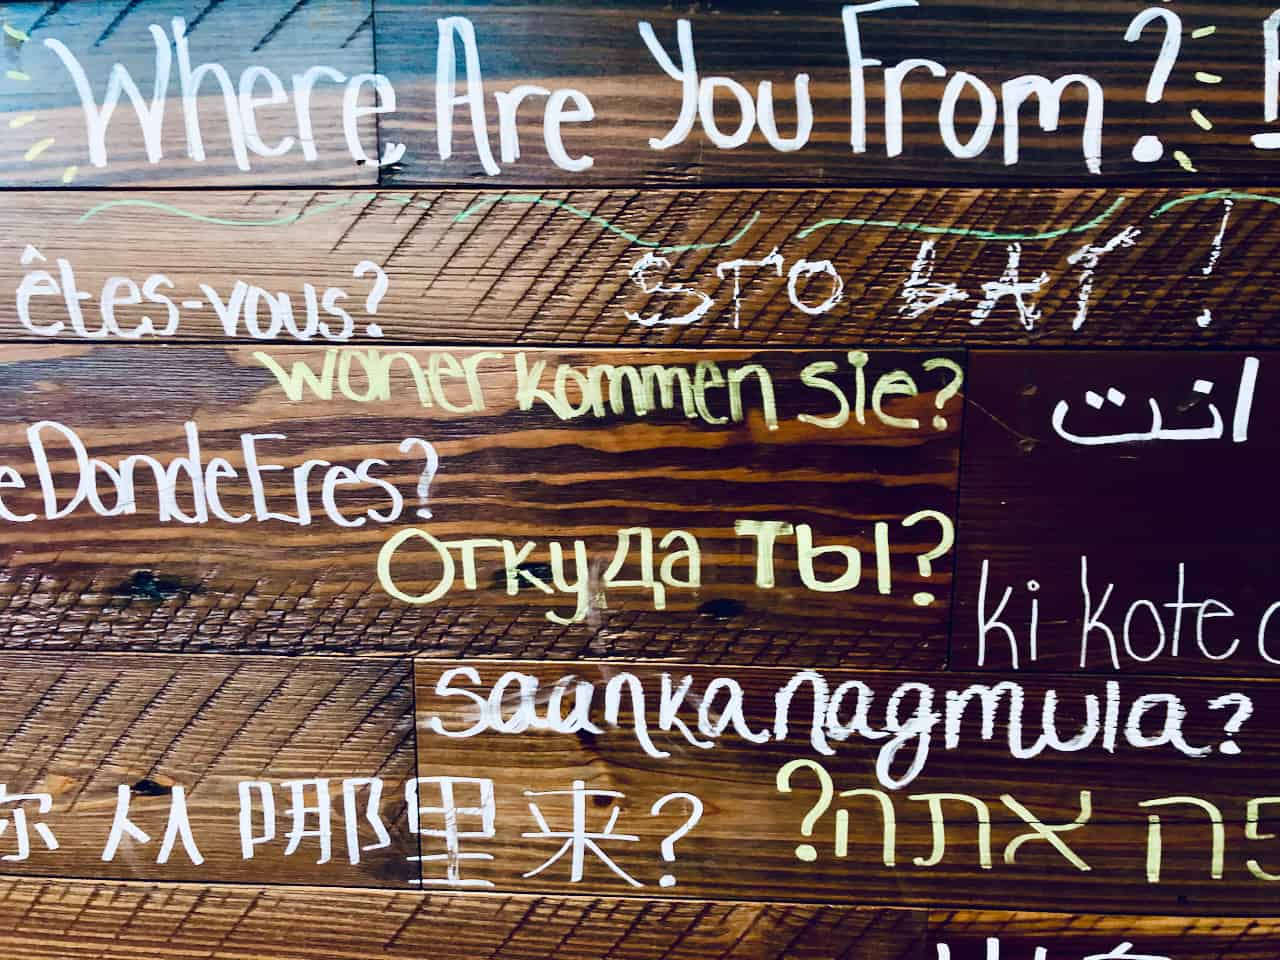 Where Are You From?
êtes-vous?
STO LAT!
woher kommen sie?
انت
eDondeEres?
Откуда ты?
ki kote
saan ka nagmula?
你从哪里来?
פה אתה?